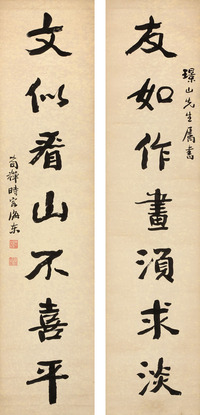 璟山先生属書
友如作畫須求淡
文似看山不喜平
時客海東